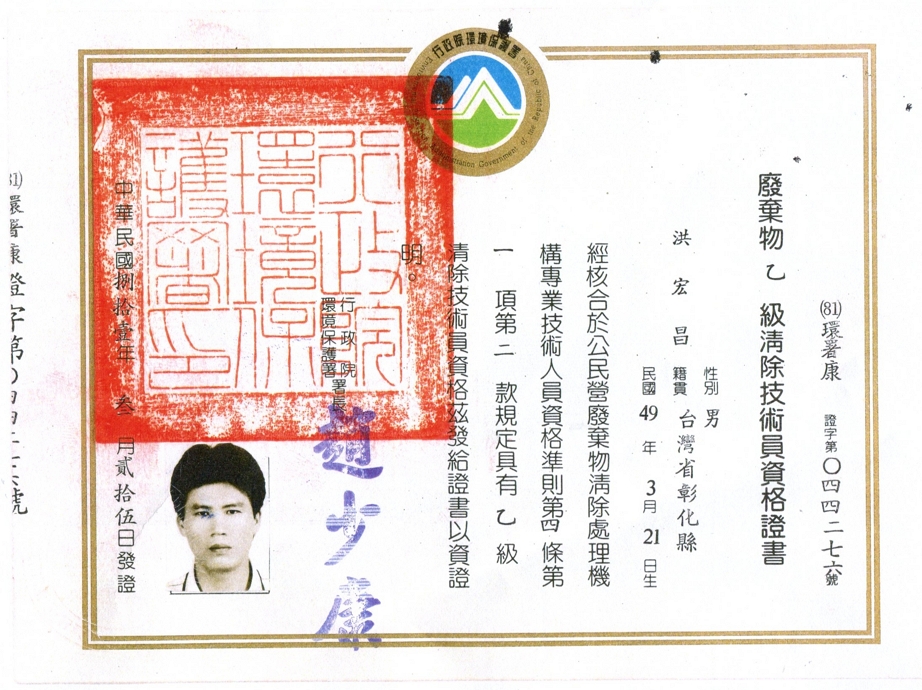 行政院環境保護署
(81)環署康 證字第〇四四二七六號
廢棄物 乙 級清除技術員資格證書
性別 男
洪宏昌 籍貫 台灣省彰化縣
民國 49 年 3 月 21 日生
經核合於公民營廢棄物清除處理機
構專業技術人員資格準則第四 條第
一 項第二 款規定具有 乙 級
清除技術員資格茲發給證書以資證
明。
行政院
環境保護署
署長
趙少康
行政院環境保護署印
中華民國捌拾壹年 叁 月貳拾伍日發證